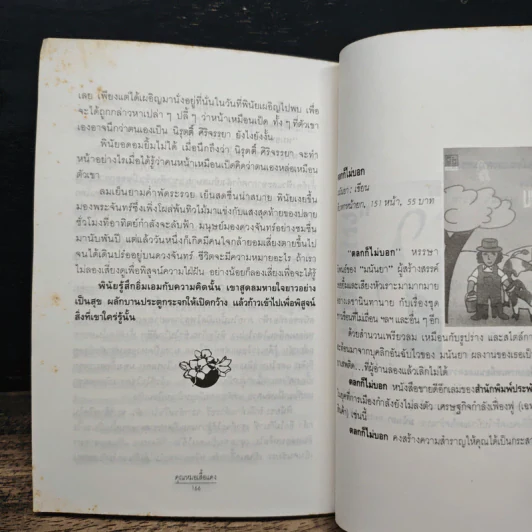 เลย เพียงแต่ได้เผอิญมานั่งอยู่ที่นั่นในวันที่พินัยเผอิญไปพบ เพื่อ
จะได้ถูกกล่าวหาเปล่า ๆ ปลี้ ๆ ว่าหน้าเหมือนเปิด ทั้ง ๆ ที่ตัวเขา
เองอาจนึกว่าตนเองเป็น นิรุตติ์ ศิริจรรยา ยังไงยังงั้น
พินัยอดอมยิ้มไม่ได้ เมื่อนึกถึงว่า นิรุตติ์ ศิริจรรยา จะทำ
หน้าอย่างไรเมื่อได้รู้ว่าคนหน้าเหมือนเปิดคิดว่าตนเองหล่อเหมือน
ตัวเขา
ลมเย็นยามค่ำพัดระรวย เย็นสดชื่นน่าสบาย พินัยเงยขึ้น
มองพระจันทร์ซึ่งเพิ่งโผล่พ้นทิวไม้มาแข่งกับแสงสุดท้ายของปลาย
ชั่วโมงที่อาทิตย์กำลังจะลับฟ้า มนุษย์มองดวงจันทร์อย่างชมชื่น
มานับพันปี แต่แล้ววันหนึ่งก็เกิดมีคนใจกล้ายอมเสี่ยงตายขึ้นไป
จนได้เดินปร๋ออยู่บนดวงจันทร์ ชีวิตจะมีความหมายอะไร ถ้าเรา
ไม่ลองเสี่ยงดูเพื่อพิสูจน์ความใฝ่ฝัน อย่างน้อยก็ลองเสี่ยงเพื่อจะได้รู้
พินัยรู้สึกอิ่มเอมกับความคิดนั้น เขาสูดลมหายใจยาวอย่าง
เป็นสุข ผลักบานประตูกระจกให้เปิดกว้าง แล้วก้าวเข้าไปเพื่อพิสูจน์
สิ่งที่เขาใคร่รู้นั้น
คุณหมอเสื้อแดง
166
ตลกก็ไม่บอก
: เขียน
151 หน้า, 55 บาท
"ตลกก็ไม่บอก" หรรษา
ของ "มนันยา" ผู้สร้างสรรค์
เสียงหัวเราะมามากมาย
นิทานาย กับเรื่องชุด
ฯลฯและอื่น ๆ อีก
ด้วยสำนวนเพรียวลม เหมือนกับรูปร่าง และสไตล์การ
มาจากบุคลิกอันฉับไวของ มนันยา ผลงานของเธอ
ที่ผู้อ่านลองแล้วเลิกไม่ได้
ตลกก็ไม่บอก หนังสือขายดีอีกเล่มของสำนักพิมพ์
ยุคที่การเมืองกำลังยังไม่ลงตัว เศรษฐกิจกำลังเฟื่องฟู
เช่นนี้
ตลกก็ไม่บอก คงสร้างความสำราญให้คุณได้เป็น